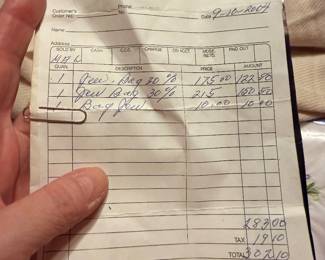 Customer's Phone
Order No. Date 9-10-2004
Name
Address
SOLD BY CASH C.O.D. CHARGE ON ACCT. MDSE. RETD. PAID OUT
QUAN. DESCRIPTION PRICE AMOUNT
1 Bag 30% 175.00 122.50
1 Bag 30% 215 150.50
1 Bag 10.00 10.00
283.00
TAX 19.10
TOTAL 302.10